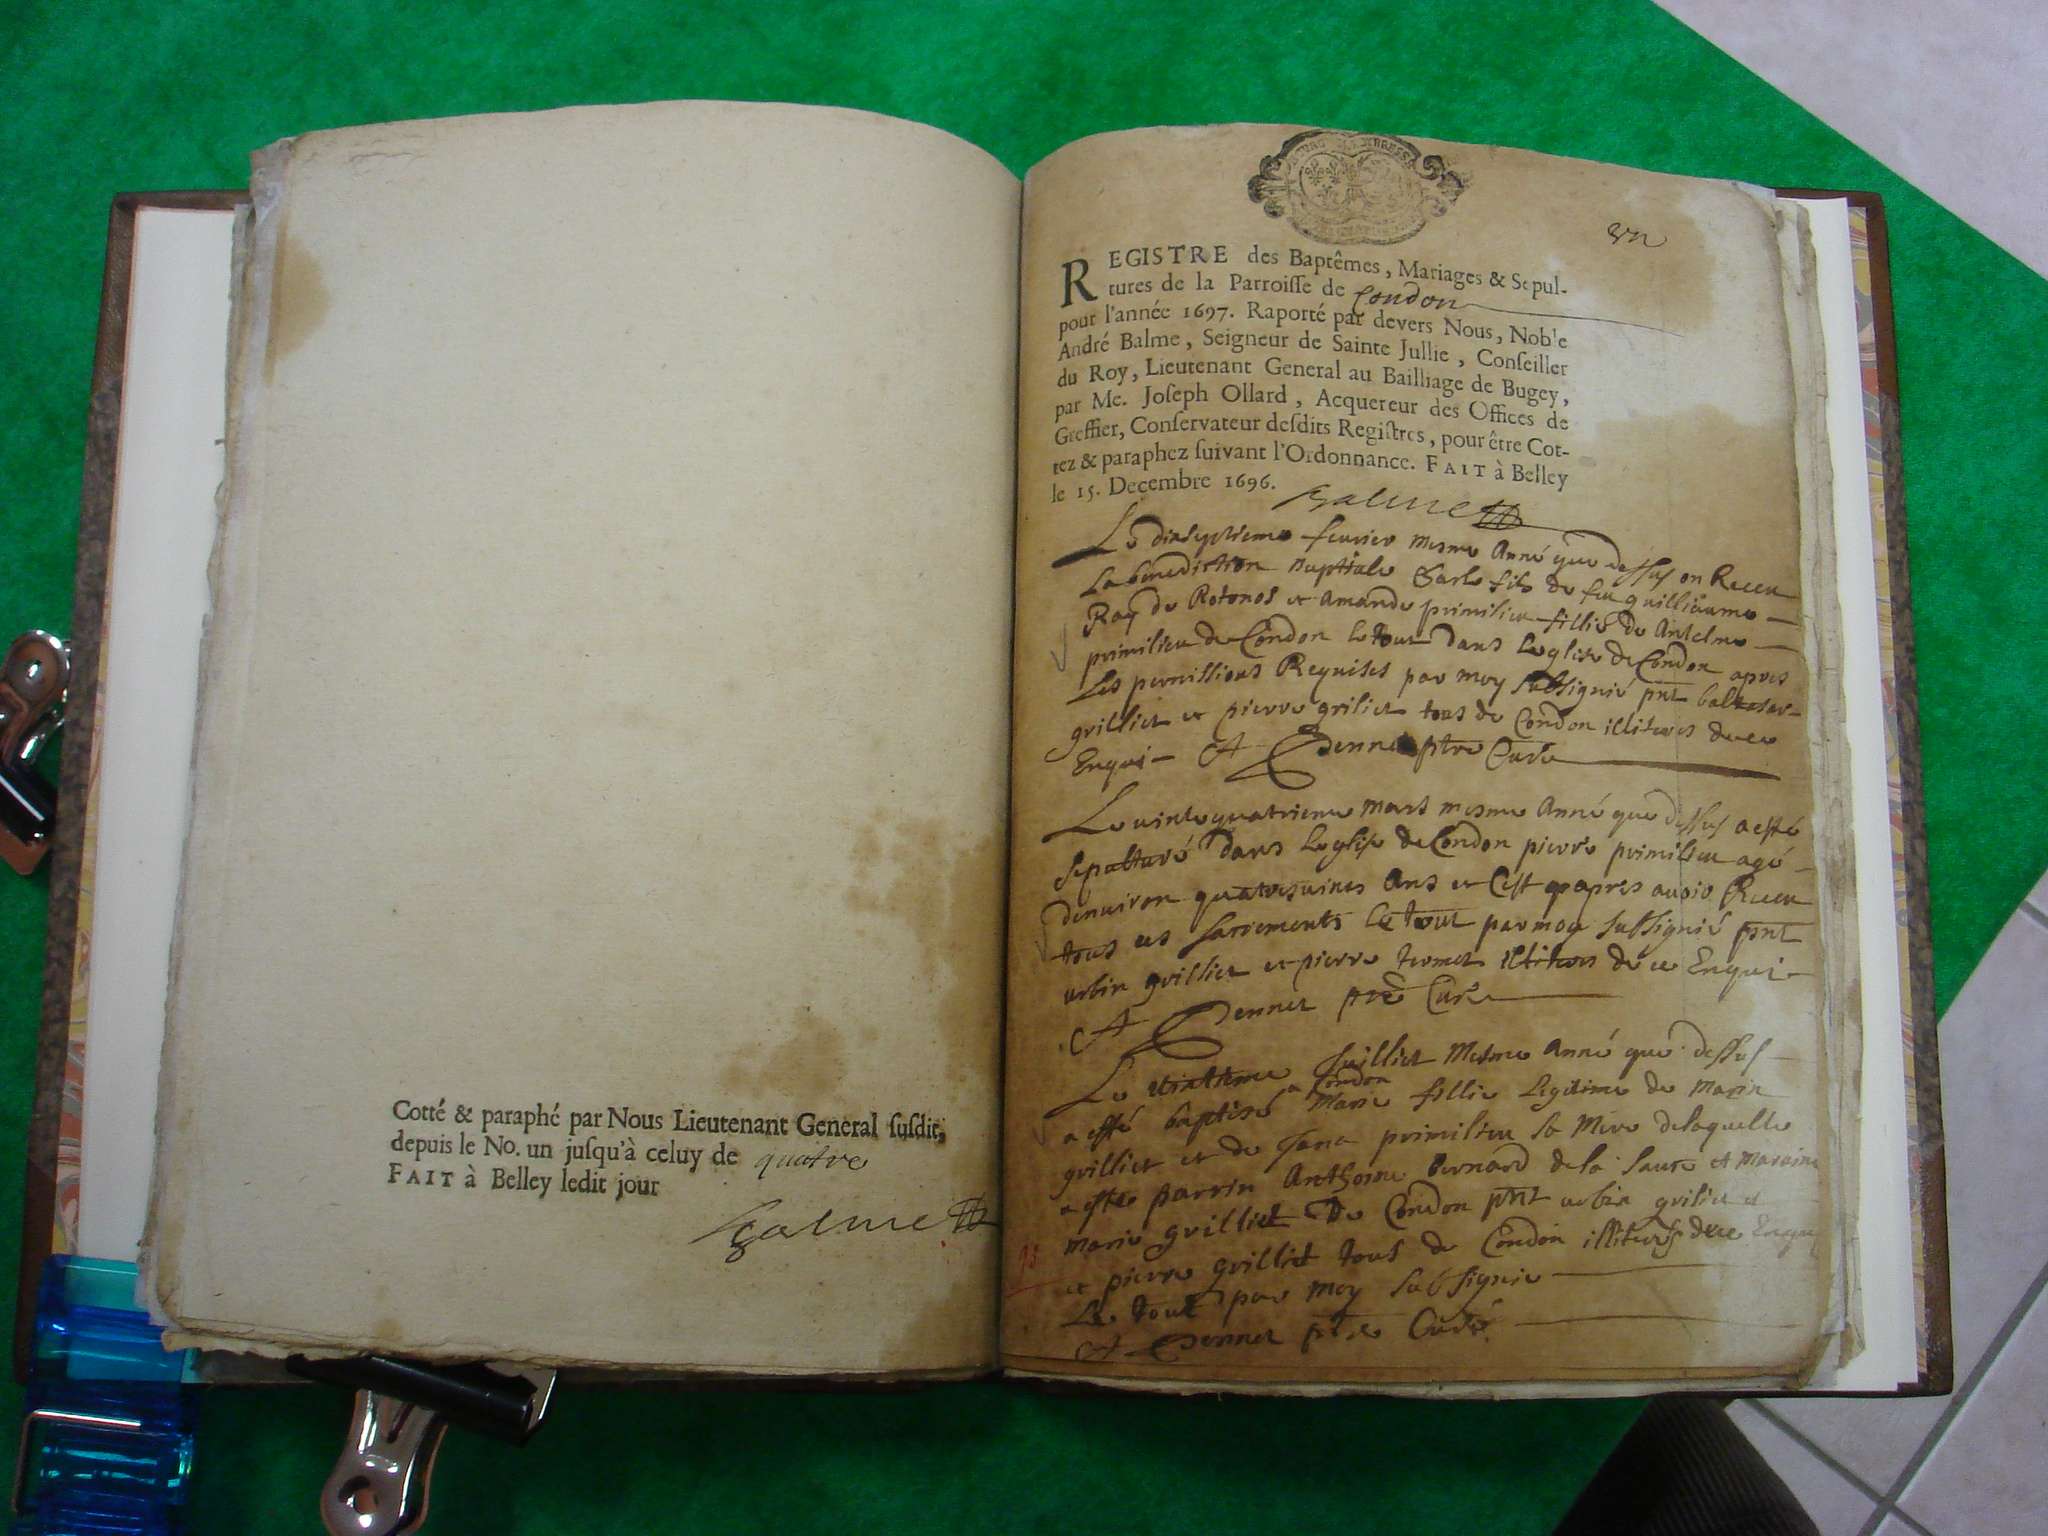 Cotté & paraphé par Nous Lieutenant General ſuſdit,
depuis le No. un juſqu'à celuy de quatre
FAIT à Belley ledit jour
Balme
un
REGISTRE des Baptêmes, Mariages & Sepul-
tures de la Parroiſſe de Condon
pour l'année 1697. Raporté par devers Nous, Noble
André Balme, Seigneur de Sainte Jullie, Conſeiller
du Roy, Lieutenant General au Bailliage de Bugey,
par Me. Joſeph Ollard, Acquereur des Offices de
Greffier, Conſervateur deſdits Regiſtres, pour être Cot-
tez & paraphez ſuivant l'Ordonnance. FAIT à Belley
le 15. Decembre 1696.
Balme
Le dixseptieme feuvier mesme Anné que dessus on Receu
La benediction nuptiale Carlo fils de feu guilliaume
Ray de Rotonos et Amande primilieu fillie de Antelme
primilieu de Condon le tout dans Leglise de Condon apres
Les permissions Requises par moy subsignié pnt baltasar
grilliet et pierre griliet tous de Condon illiteres de ce
Enqui A Dennet ptre Curé
Le uinte quatrieme mars mesme Anné que dessus a esté
sepulturé dans Leglise de Condon pierre primilieu agé
denuiron quatreuints Ans et Cest apres auoir Receu
tous ces sacrements Le tout par moy subsignié pnt
urbin grilliet et pierre illiteres de ce Enqui
A Dennet ptre Curé
Le uintieme Juilliet Mesme Anné que dessus
a Condon
a esté baptisé Marie fillie Legitime de Marin
grilliet et de Jana primilieu sa Mere delaquelle
a este parrin Anthoine bernard dela et maraine
Marie grilliet De Condon pnt urbin griliet
et pierre grilliet tous de Condon illiteres de ce Enqui
Le tout par moy subsignié
A Dennet ptre Curé